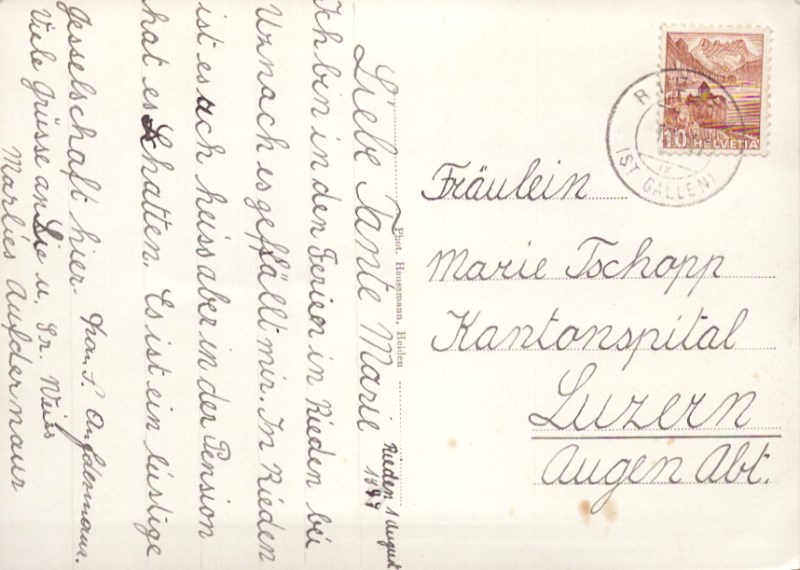 Rieden 1 August
1944
Liebe Tante Marie
Ich bin in den Ferien in Rieden bei
Urnach es gefällt mir. In Rieden
ist es auch heiss aber in der Pension
hat es Schatten. Es ist ein lustige
Gesselschaft hier.
Viele Grüsse an Sie u. Gr. Weiss
Marlies Aufdermaur
Aufdermaur.
Phot. Haussmann, Heiden
Fräulein
Marie Tschopp
Kantonspital
Luzern
Augen Abt.
10 HELVETIA
(ST GALLEN)